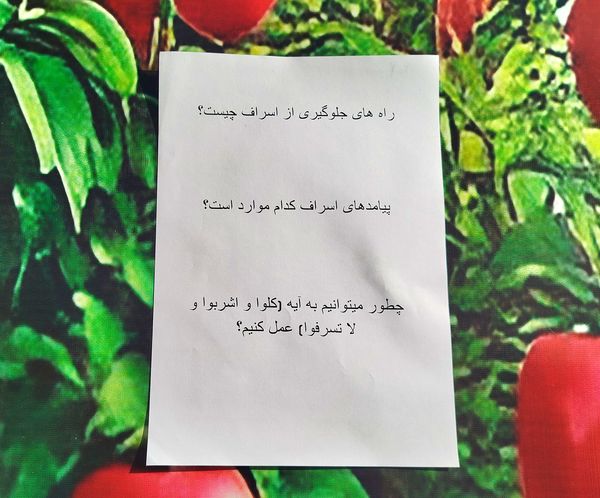 راه های جلوگیری از اسراف چیست؟
پیامدهای اسراف کدام موارد است؟
چطور میتوانیم به آیه (کلوا و اشربوا و
لا تسرفوا) عمل کنیم؟